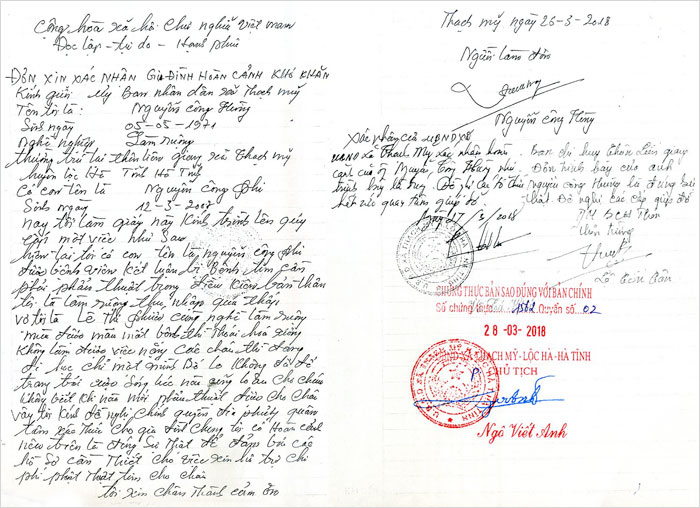 Cộng hòa xã hội Chủ nghĩa Việt nam
Độc lập - tự do - Hạnh phúc
ĐƠN XIN XÁC NHẬN GIA ĐÌNH HOÀN CẢNH KHÓ KHĂN
Kính gửi: Uỷ Ban nhân dân xã Thạch mỹ
Tên tôi là: Nguyễn công Hưng
Sinh ngày 05-05-1971
Nghề nghiệp Làm ruộng
thường trú tại thôn liên giang xã Thạch mỹ
huyện lộc Hà Tỉnh Hà Tĩnh
Có con tên là Nguyễn công phi
Sinh ngày 12-3-2007
nay tôi làm giấy này Kính trình lên quý
cấp một việc như sau
hiện tại tôi có con tên là nguyễn công phi
được bệnh viện kết luận bị bệnh tim cần
phải phẫu thuật trong điều kiện bản thân
tôi là làm ruộng thu nhập quá thấp
vợ tôi là Lê Thị phiếu cũng nghề làm ruộng
mùa được mùa mất bệnh thì Thoái hoá
không làm được việc nặng các cháu thì đang
đi học chỉ một mình Bố lo không đủ để
trang trải cuộc sống lúc nào cũng lo âu cho cháu
không biết khi nào mới phẫu thuật được cho cháu
vậy tôi kính đề nghị chính quyền địa phương quan
tâm xác thực cho gia đình chúng tôi có hoàn cảnh
nêu trên là đúng sự thật để đảm bảo các
hồ sơ cần thiết cho việc xin hỗ trợ chi
phí phẫu thuật tim cho cháu
tôi xin chân thành cảm ơn
Thạch mỹ ngày 26-3-2018
Người làm đơn
Nguyễn công Hưng
Xác nhận của UBND xã
UBND xã Thạch Mỹ xác nhận hoàn
cảnh của ông Nguyễn Công Hưng như
trình bày là đúng. Đề nghị các tổ chức
hết sức quan tâm giúp đỡ.
Ngày 27/3/2018
Ban chỉ huy thôn Liên giang
Đơn trình bày của anh
Nguyễn Công Hưng là đúng sự
thật. Đề nghị các cấp giúp đỡ
TM BCH thôn
Thôn trưởng
CHỨNG THỰC BẢN SAO ĐÚNG VỚI BẢN CHÍNH
Số chứng thực Quyển số 02
28-03-2018
UBND XÃ THẠCH MỸ-LỘC HÀ-HÀ TĨNH
CHỦ TỊCH
Ngô Viết Anh